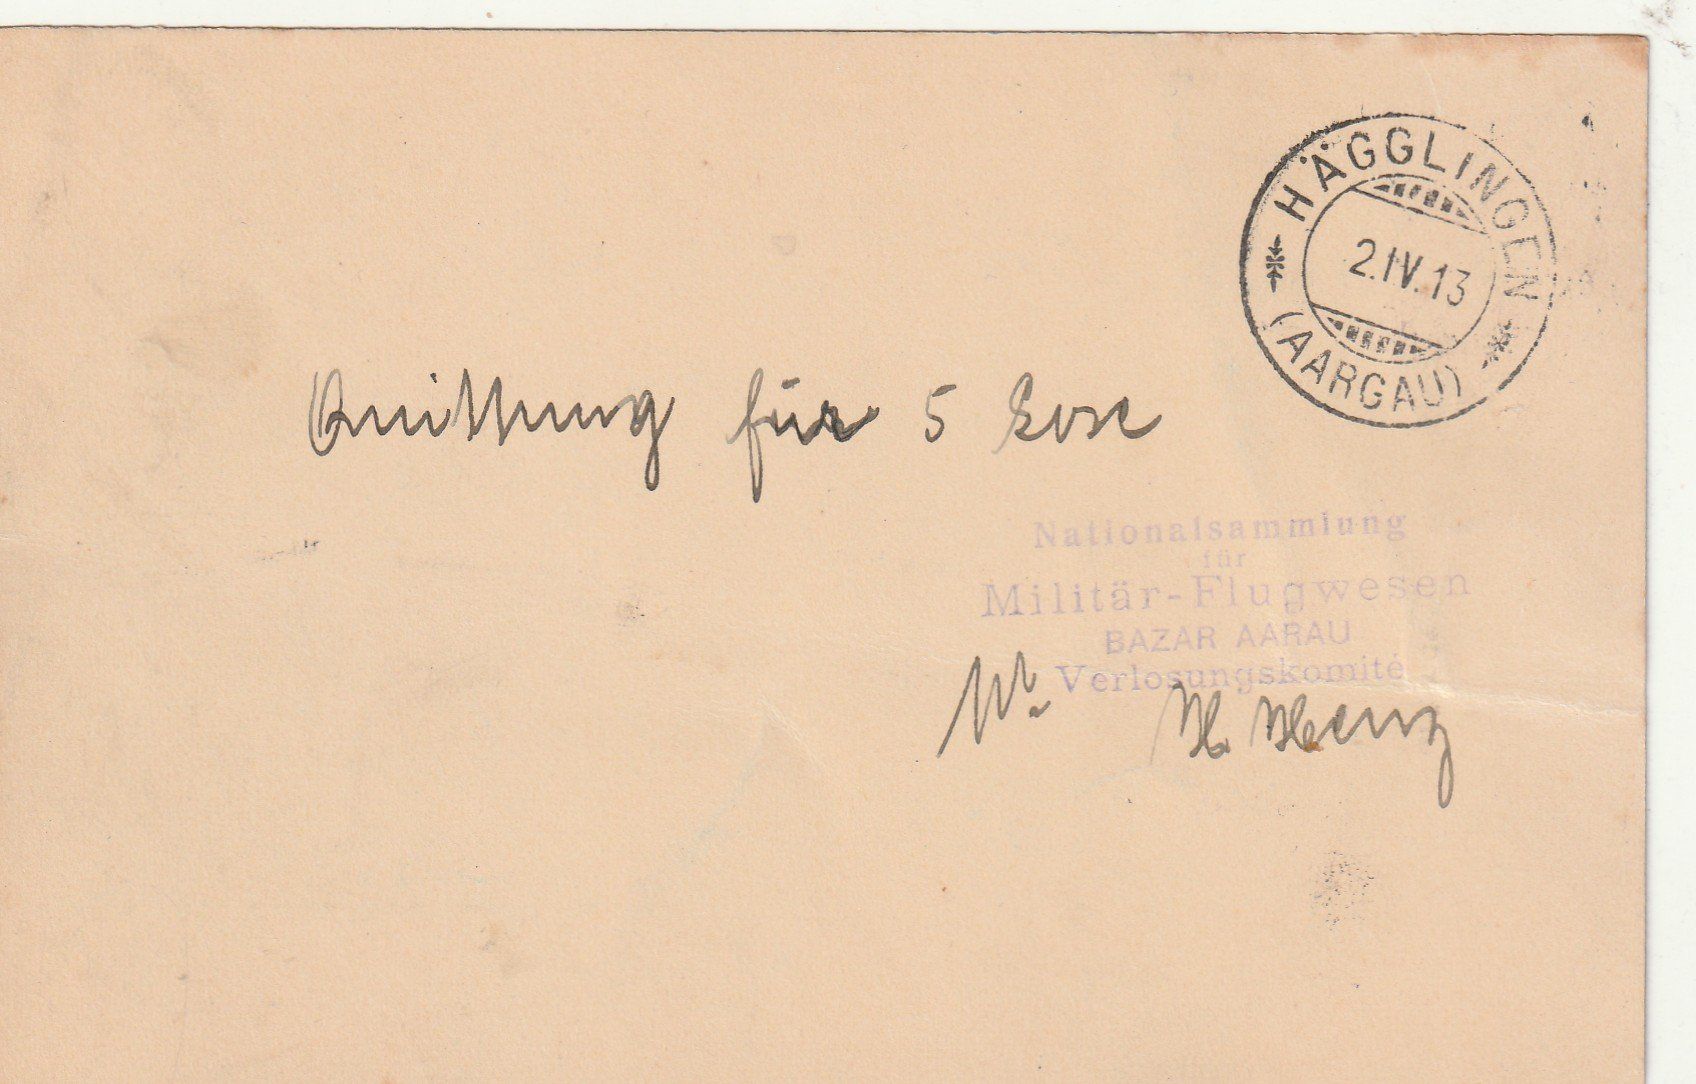 HÄGGLINGEN
2.IV.13
(AARGAU)
Quittung für 5 Lose
Nationalsammlung
für
Militär-Flugwesen
BAZAR AARAU
Verlosungskomité